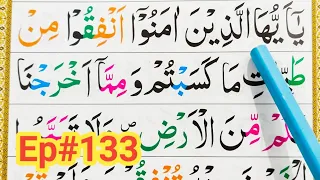 يٰۤاَيُّهَا الَّذِيْنَ اٰمَنُوْۤا اَنْفِقُوْا مِنْ
طَيِّبٰتِ مَا كَسَبْتُمْ وَ مِمَّاۤ اَخْرَجْنَا
لَكُمْ مِّنَ الْاَرْضِ ۪ وَ لَا تَيَمَّمُوا
Ep#133